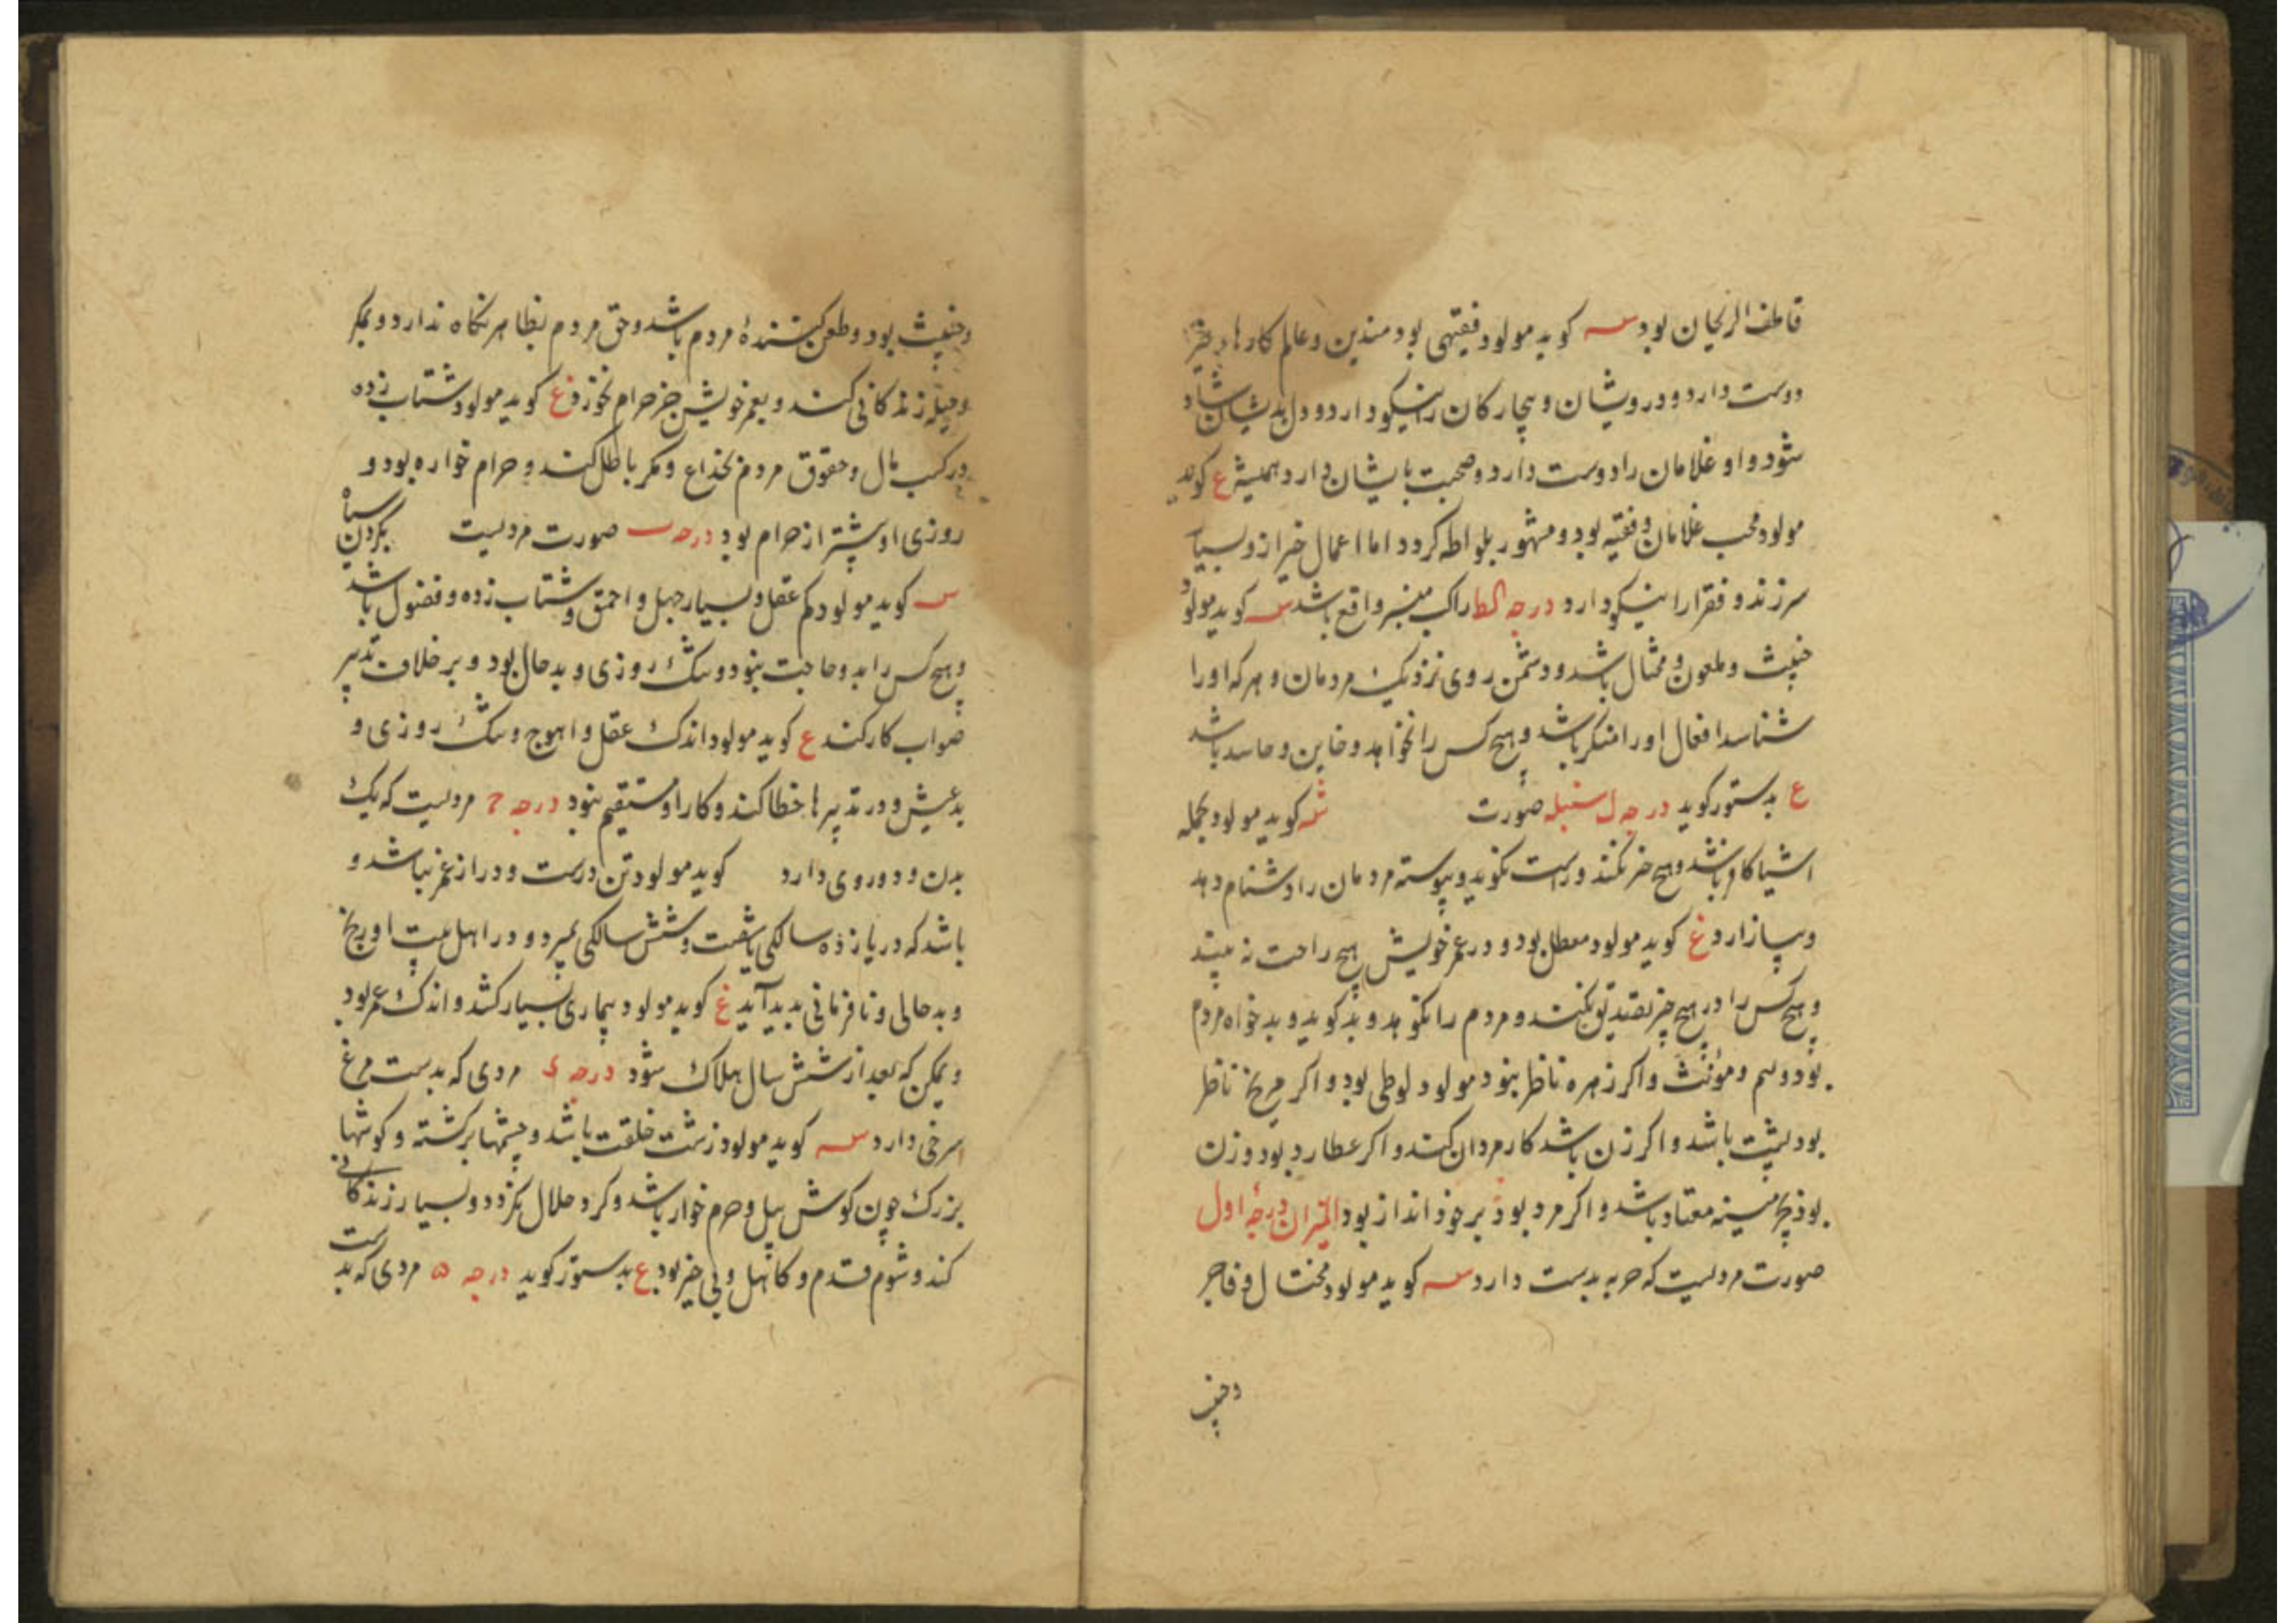 قاطف الریحان بود س کوید مولود فقیهی بود متدین و عالم کارها و خیر
دوست دارد و درویشان و بیچارکان را نیکو دارد و دل بدیشان شاد
شود و او غلامان را دوست دارد و صحبت با یشان دارد همیشه ع کوید
مولود محب غلامان و فقیه بود و مشهور بلواطه کردد اما اعمال خیر از و بسیار
سر زند و فقرا را نیکو دارد درجه کط راکب منبر واقع باشد س کوید مولود
خبیث و ملعون و محتال باشد و دشمن روی نزدیک مردمان و هر که او را
شناسد افعال او را منکر باشد و هیچ کس را نخواهد و خاین و حاسد باشد
ع بدستور کوید درجه ل سنبله صورت س کوید مولود بجمله
اشیا کافر باشد و هیچ خیر نکند و راست نکوید و پیوسته مردمان را دشنام دهد
و بیازارد ع کوید مولود معطل بود و در عمر خویش هیچ راحت نه بیند
و هیچ کس را در هیچ چیز تصدیق نکند و مردم را نکوهد و بد کوید و بد خواه مردم
بود و لئیم و مؤنث و اکر زهره ناظر نبود مولود لوطی بود و اکر مریخ ناظر
بود لپشت باشد و اکر زن باشد کار مردان کند و اکر عطارد بود و زن
بود بچرمینه معتاد باشد و اکر مرد بود بر خود انداز بود المیزان درجهٔ اول
صورت مردیست که حربه بدست دارد س کوید مولود مختال و فاجر
و خبیث
و خبیث بود و طعن کنندهٔ مردم باشد و حق مردم بظاهر نکاه ندارد و بمکر
و حیله زندکانی کند و بعمر خویش جز حرام نخورد ع کوید مولود شتاب زده
در کسب مال و حقوق مردم بخداع و مکر باطل کند و حرام خواره بود و
روزی او بیشتر از حرام بود درجه ب صورت مردیست بکردن سیاه
س کوید مولود کم عقل و بسیار جهل و احمق و شتاب زده و فضول باشد
و هیچ کس را بدو حاجت نبود و تنک روزی و بد حال بود و بر خلاف تدبیر
صواب کار کند ع کوید مولود اندک عقل و اهوج و تنک روزی و
بد عیش و در تدبیرها خطا کند و کار او مستقیم نبود درجه ج مردیست که یک
بدن و دو روی دارد کوید مولود تن درست و دراز عمر نباشد و
باشد که در یازده سالکی یا شصت و شش سالکی بمیرد و در اهل بیت او رنج
و بد حالی و نا فرمانی بدید آید ع کوید مولود بیماری بسیار کشد و اندک عمر بود
و یمکن که بعد از شش سال هلاک شود درجه د مردی که بدست مرغ
سرخی دارد س کوید مولود زشت خلقت باشد و چشمها بر کشته و کوشها
بزرک چون کوش پیل و حرم خوار باشد و کرد حلال نکردد و بسیار زندکانی
کند و شوم قدم و کاهل و بی خیر بود ع بدستور کوید درجه ه مردی که بدست